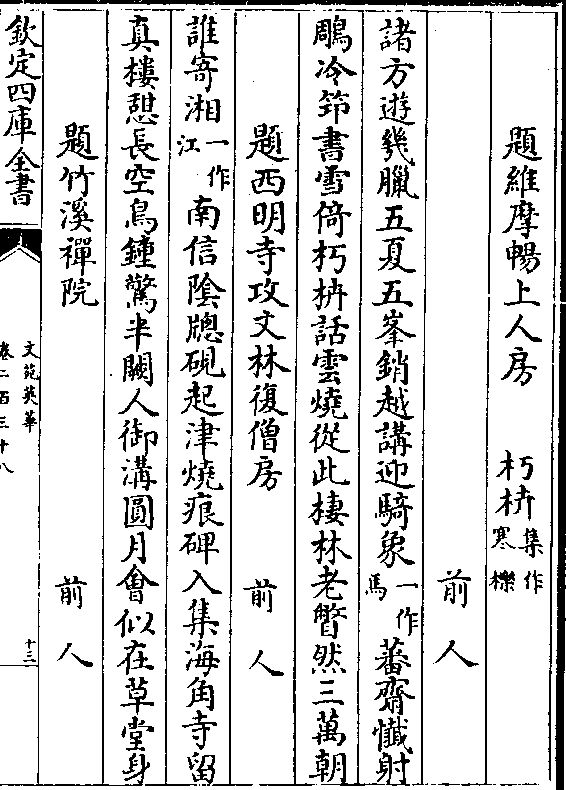 題維摩暢上人房　朽枿集作寒櫟
前人
諸方遊幾臘五夏五峯銷越講迎騎象一作馬蕃齋懺射
鵰冷笻書雪倚朽枿話雲燒從此棲林老瞥然三萬朝
題西明寺攻文林復僧房　前人
誰寄湘一作江南信陰牕硯起津燒痕碑入集海角寺留
真樓憇長空鳥鍾驚半闕人御溝圓月會似在草堂身
題竹溪禪院　前人
欽定四庫全書
文苑英華
卷二百三十八
十三